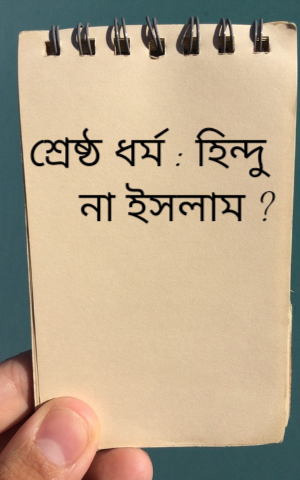 শ্রেষ্ঠ ধর্ম : হিন্দু
না ইসলাম ?